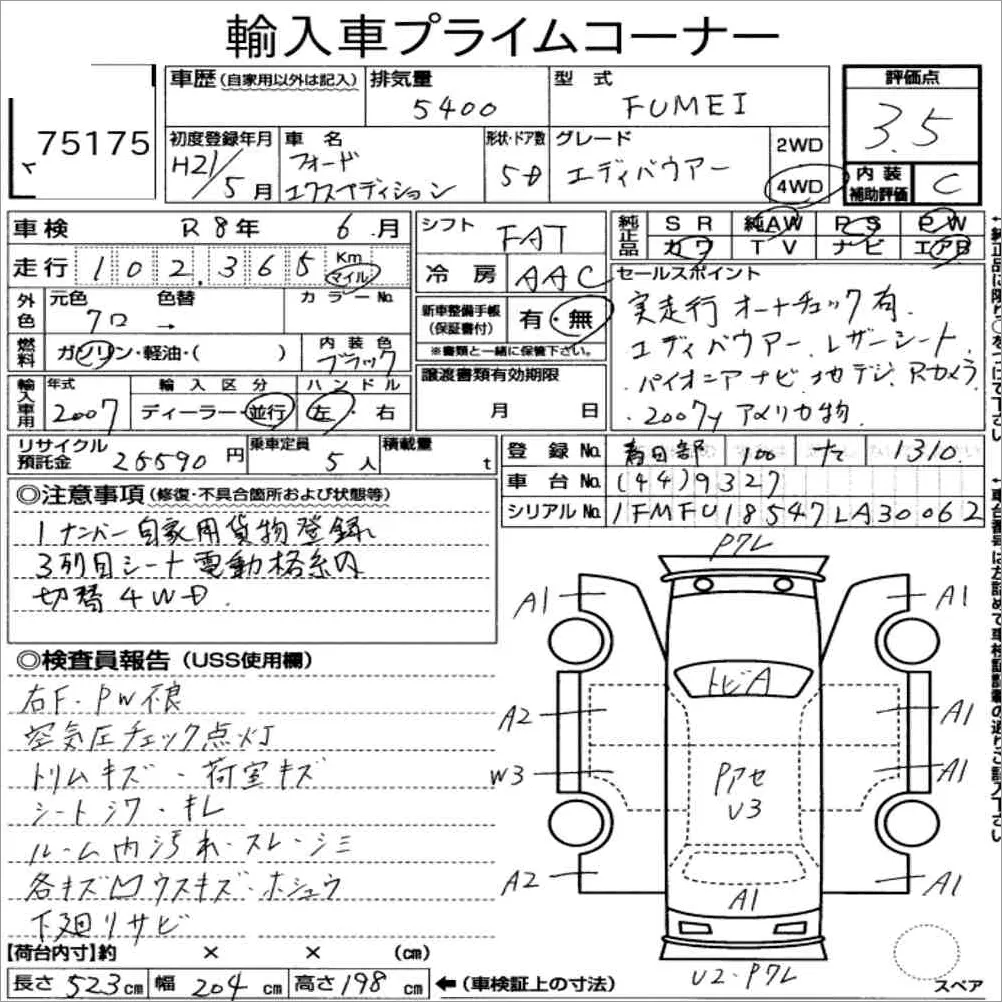 輸入車プライムコーナー
75175
車歴(自家用以外は記入)
排気量
5400
型式
FUMEI
評価点
3.5
初度登録年月
H21/5月
車名
フォード
エクスペディション
形状・ドア数
5D
グレード
エディバウアー
2WD
4WD
内装
補助評価
C
車検 R8年 6月
走行 102,365 Km マイル
シフト
FAT
冷房 AAC
純正品
SR 純AW PS PW
カワ TV ナビ エアB
外色
元色 色替 カラーNo.
クロ →
燃料
ガソリン・軽油・( )
内装色
ブラック
新車整備手帳
(保証書付)
有・無
※書類と一緒に保管下さい。
セールスポイント
実走行 オートチェック有
エディバウアー レザーシート
パイオニアナビ 地デジ Rカメラ
・2007y アメリカ物
輸入車用
年式
2007
輸入区分
ディーラー・並行
ハンドル
左・右
譲渡書類有効期限
月 日
リサイクル
預託金
25590円
乗車定員
5人
積載量
t
登録No. 春日部 100 て 1310
車台No. (44)9327
シリアルNo. 1FMFU18547LA30062
◎注意事項(修復・不具合箇所および状態等)
1ナンバー自家用貨物登録
3列目シート電動格納
切替4WD.
◎検査員報告(USS使用欄)
右F.PW不良
空気圧チェック点灯
トリムキズ・荷室キズ
シートシワ・キレ
ルーム内汚れ・スレ・シミ
各キズ凹ウスキズ・ホシュウ
下廻りサビ
P7L
A1
A1
トビA
A2
A1
W3
A1
Pアセ
U3
A2
A1
A1
U2・P7L
【荷台内寸】約 × × (cm)
長さ 523cm 幅 204cm 高さ 198cm ←(車検証上の寸法)
スペア